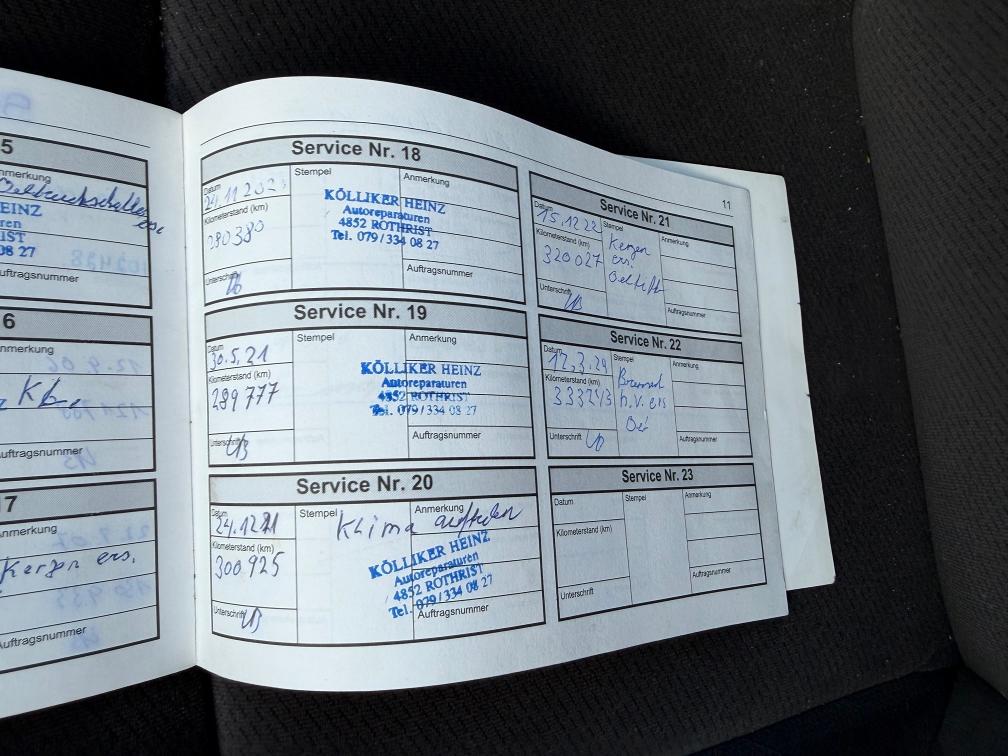 5
nmerkung
EINZ
ren
IST
08 27
uftragsnummer
6
nmerkung
uftragsnummer
17
nmerkung
Kerzen ers.
uftragsnummer
Service Nr. 18
Datum
Stempel
Anmerkung
24.11.202
Kilometerstand (km)
280380
KÖLLIKER HEINZ
Autoreparaturen
4852 ROTHRIST
Tel. 079/334 08 27
Unterschrift
Auftragsnummer
Service Nr. 19
Datum
Stempel
Anmerkung
30.5.21
Kilometerstand (km)
289777
KÖLLIKER HEINZ
Autoreparaturen
4852 ROTHRIST
Tel. 079/334 08 27
Unterschrift
Auftragsnummer
Service Nr. 20
Datum
Stempel
Anmerkung
24.12.21
Klima
Kilometerstand (km)
300925
KÖLLIKER HEINZ
Autoreparaturen
4852 ROTHRIST
Tel. 079/334 08 27
Unterschrift
Auftragsnummer
11
Service Nr. 21
Datum
Stempel
Anmerkung
15.12.22
Kerzen
ers.
Kilometerstand (km)
320027
Unterschrift
Auftragsnummer
Service Nr. 22
Datum
Stempel
Anmerkung
12.3.24
Kilometerstand (km)
333243
h.v. ers
Oel
Unterschrift
Auftragsnummer
Service Nr. 23
Datum
Stempel
Anmerkung
Kilometerstand (km)
Unterschrift
Auftragsnummer